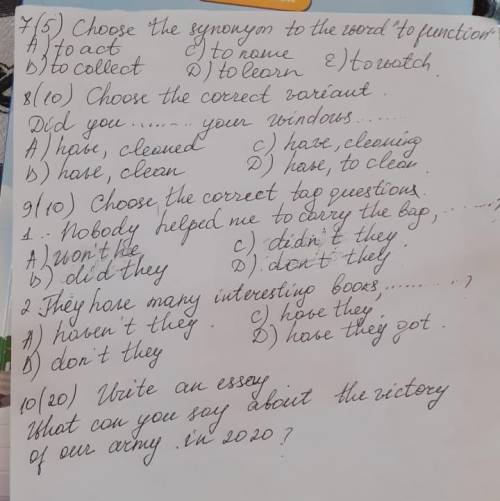 7(5) Choose the synonym to the word "to function"
A) to act C) to name
B) to collect D) to learn E) to watch
8(10) Choose the correct variant.
Did you ........ your windows.......
A) have, cleaned C) have, cleaning
B) have, clean D) have, to clean.
9(10) Choose the correct tag questions.
1.. Nobody helped me to carry the bag, .......?
A) won't he C) didn't they
B) did they D) don't they
2 They have many interesting books, .........?
A) haven't they. C) have they
B) don't they D) have they got.
10(20) Write an essay
What can you say about the victory
of our army in 2020?